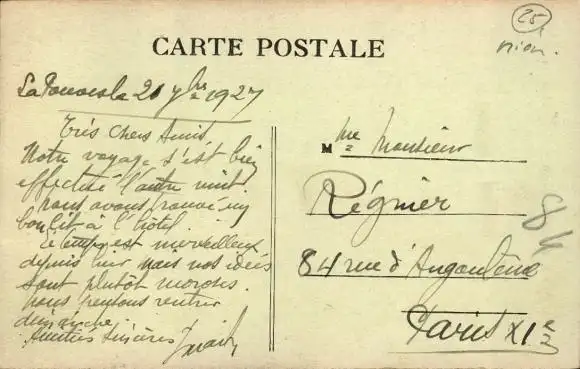 25
CARTE POSTALE
21 7bre 1927
Très Chers Amis
Notre voyage s'est bien
effectué l'autre nuit.
nous avons trouvé un
bon lit à l'hôtel.
Le temps est merveilleux
depuis hier mais nos idées
sont plutôt moroses.
nous pensons rentrer
dimanche.
Amitiés sincères
Mme Monsieur
Régnier
84 rue d'Angoulême
Paris XIe